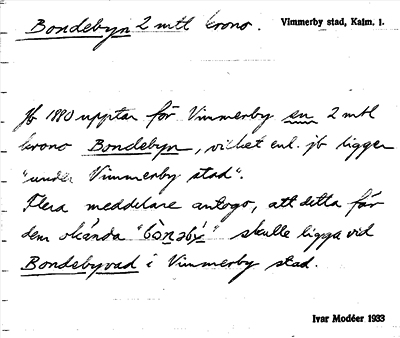 Bondebyn 2 mtl krono. Vimmerby stad, Kalm. l.
Jb 1880 upptar för Vimmerby en 2 mtl
krono Bondebyn, vilket enl. jb ligger
"under Vimmerby stad".
Flera meddelare antogo, att detta för
dem okända "bònəbý" skulle ligga vid
Bondebyvad i Vimmerby stad.
Ivar Modéer 1933